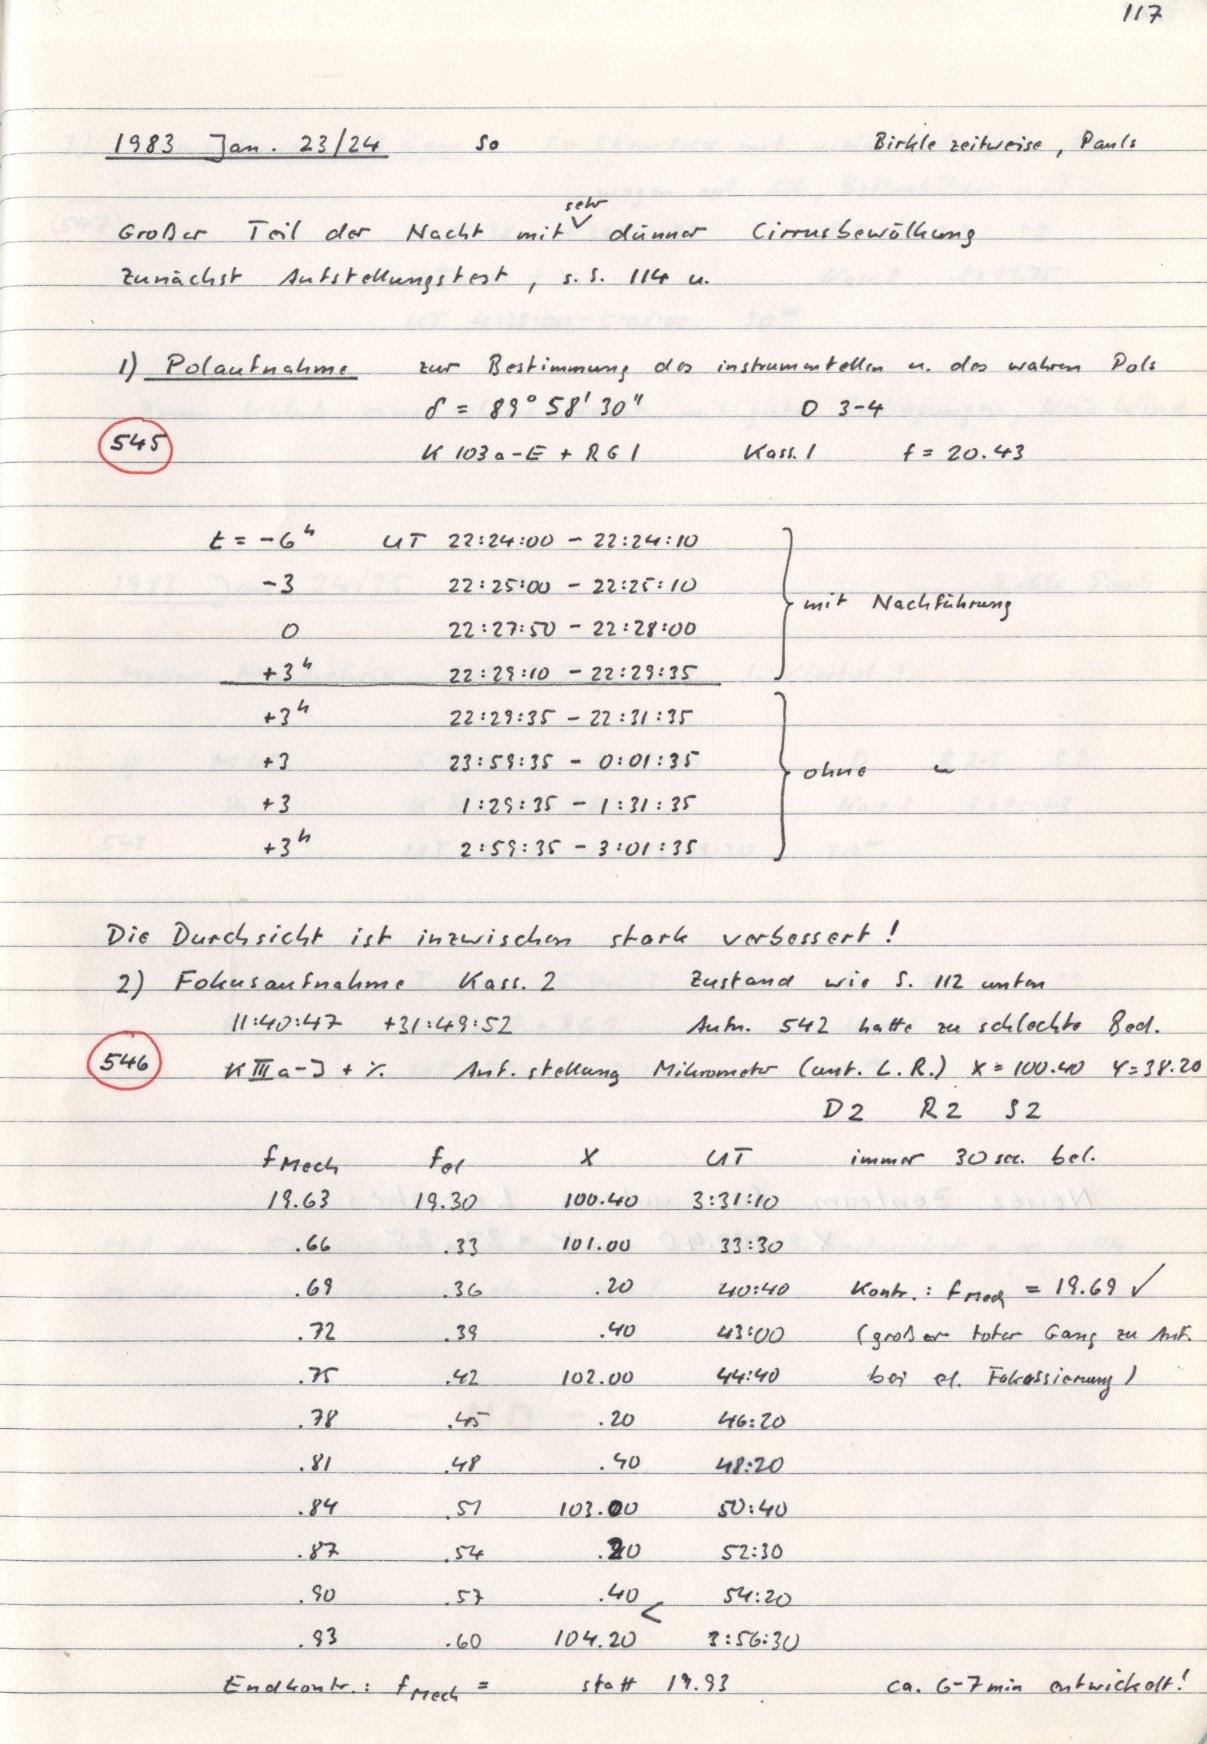 117
1983 Jan. 23/24 So Birkle zeitweise, Pauls
Großer Teil der Nacht mit sehr dünner Cirrusbewölkung
Zunächst Aufstellungstest, s. S. 114 u.
1) Polaufnahme zur Bestimmung des instrumentellen u. des wahren Pols
δ = 89° 58' 30" D 3-4
545 K 103a-E + RG1 Kass. 1 f = 20.43
t = -6h UT 22:24:00 - 22:24:10
-3 22:25:00 - 22:25:10
mit Nachführung
0 22:27:50 - 22:28:00
+3h 22:29:10 - 22:29:35
+3h 22:29:35 - 22:31:35
+3 23:59:35 - 0:01:35 ohne "
+3 1:29:35 - 1:31:35
+3h 2:59:35 - 3:01:35
Die Durchsicht ist inzwischen stark verbessert!
2) Fokusaufnahme Kass. 2 Zustand wie S. 112 unten
11:40:47 +31:49:52 Aufn. 542 hatte zu schlechte Bed.
546 K III a-J + %. Auf. stellung Mikrometer (unt. L.R.) X = 100.40 Y = 38.20
D2 R2 S2
fMech fel X UT immer 30 sec. bel.
19.63 19.30 100.40 3:31:10
.66 .33 101.00 33:30
.69 .36 .20 40:40 Kontr.: fMech = 19.69 ✓
.72 .39 .40 43:00 (großer toter Gang zu Anf.
.75 .42 102.00 44:40 bei el. Fokussierung)
.78 .45 .20 46:20
.81 .48 .40 48:20
.84 .51 103.00 50:40
.87 .54 .20 52:30
.90 .57 .40 54:20
<
.93 .60 104.20 3:56:30
Endkontr.: fMech = statt 19.93 ca. 6-7 min entwickelt!